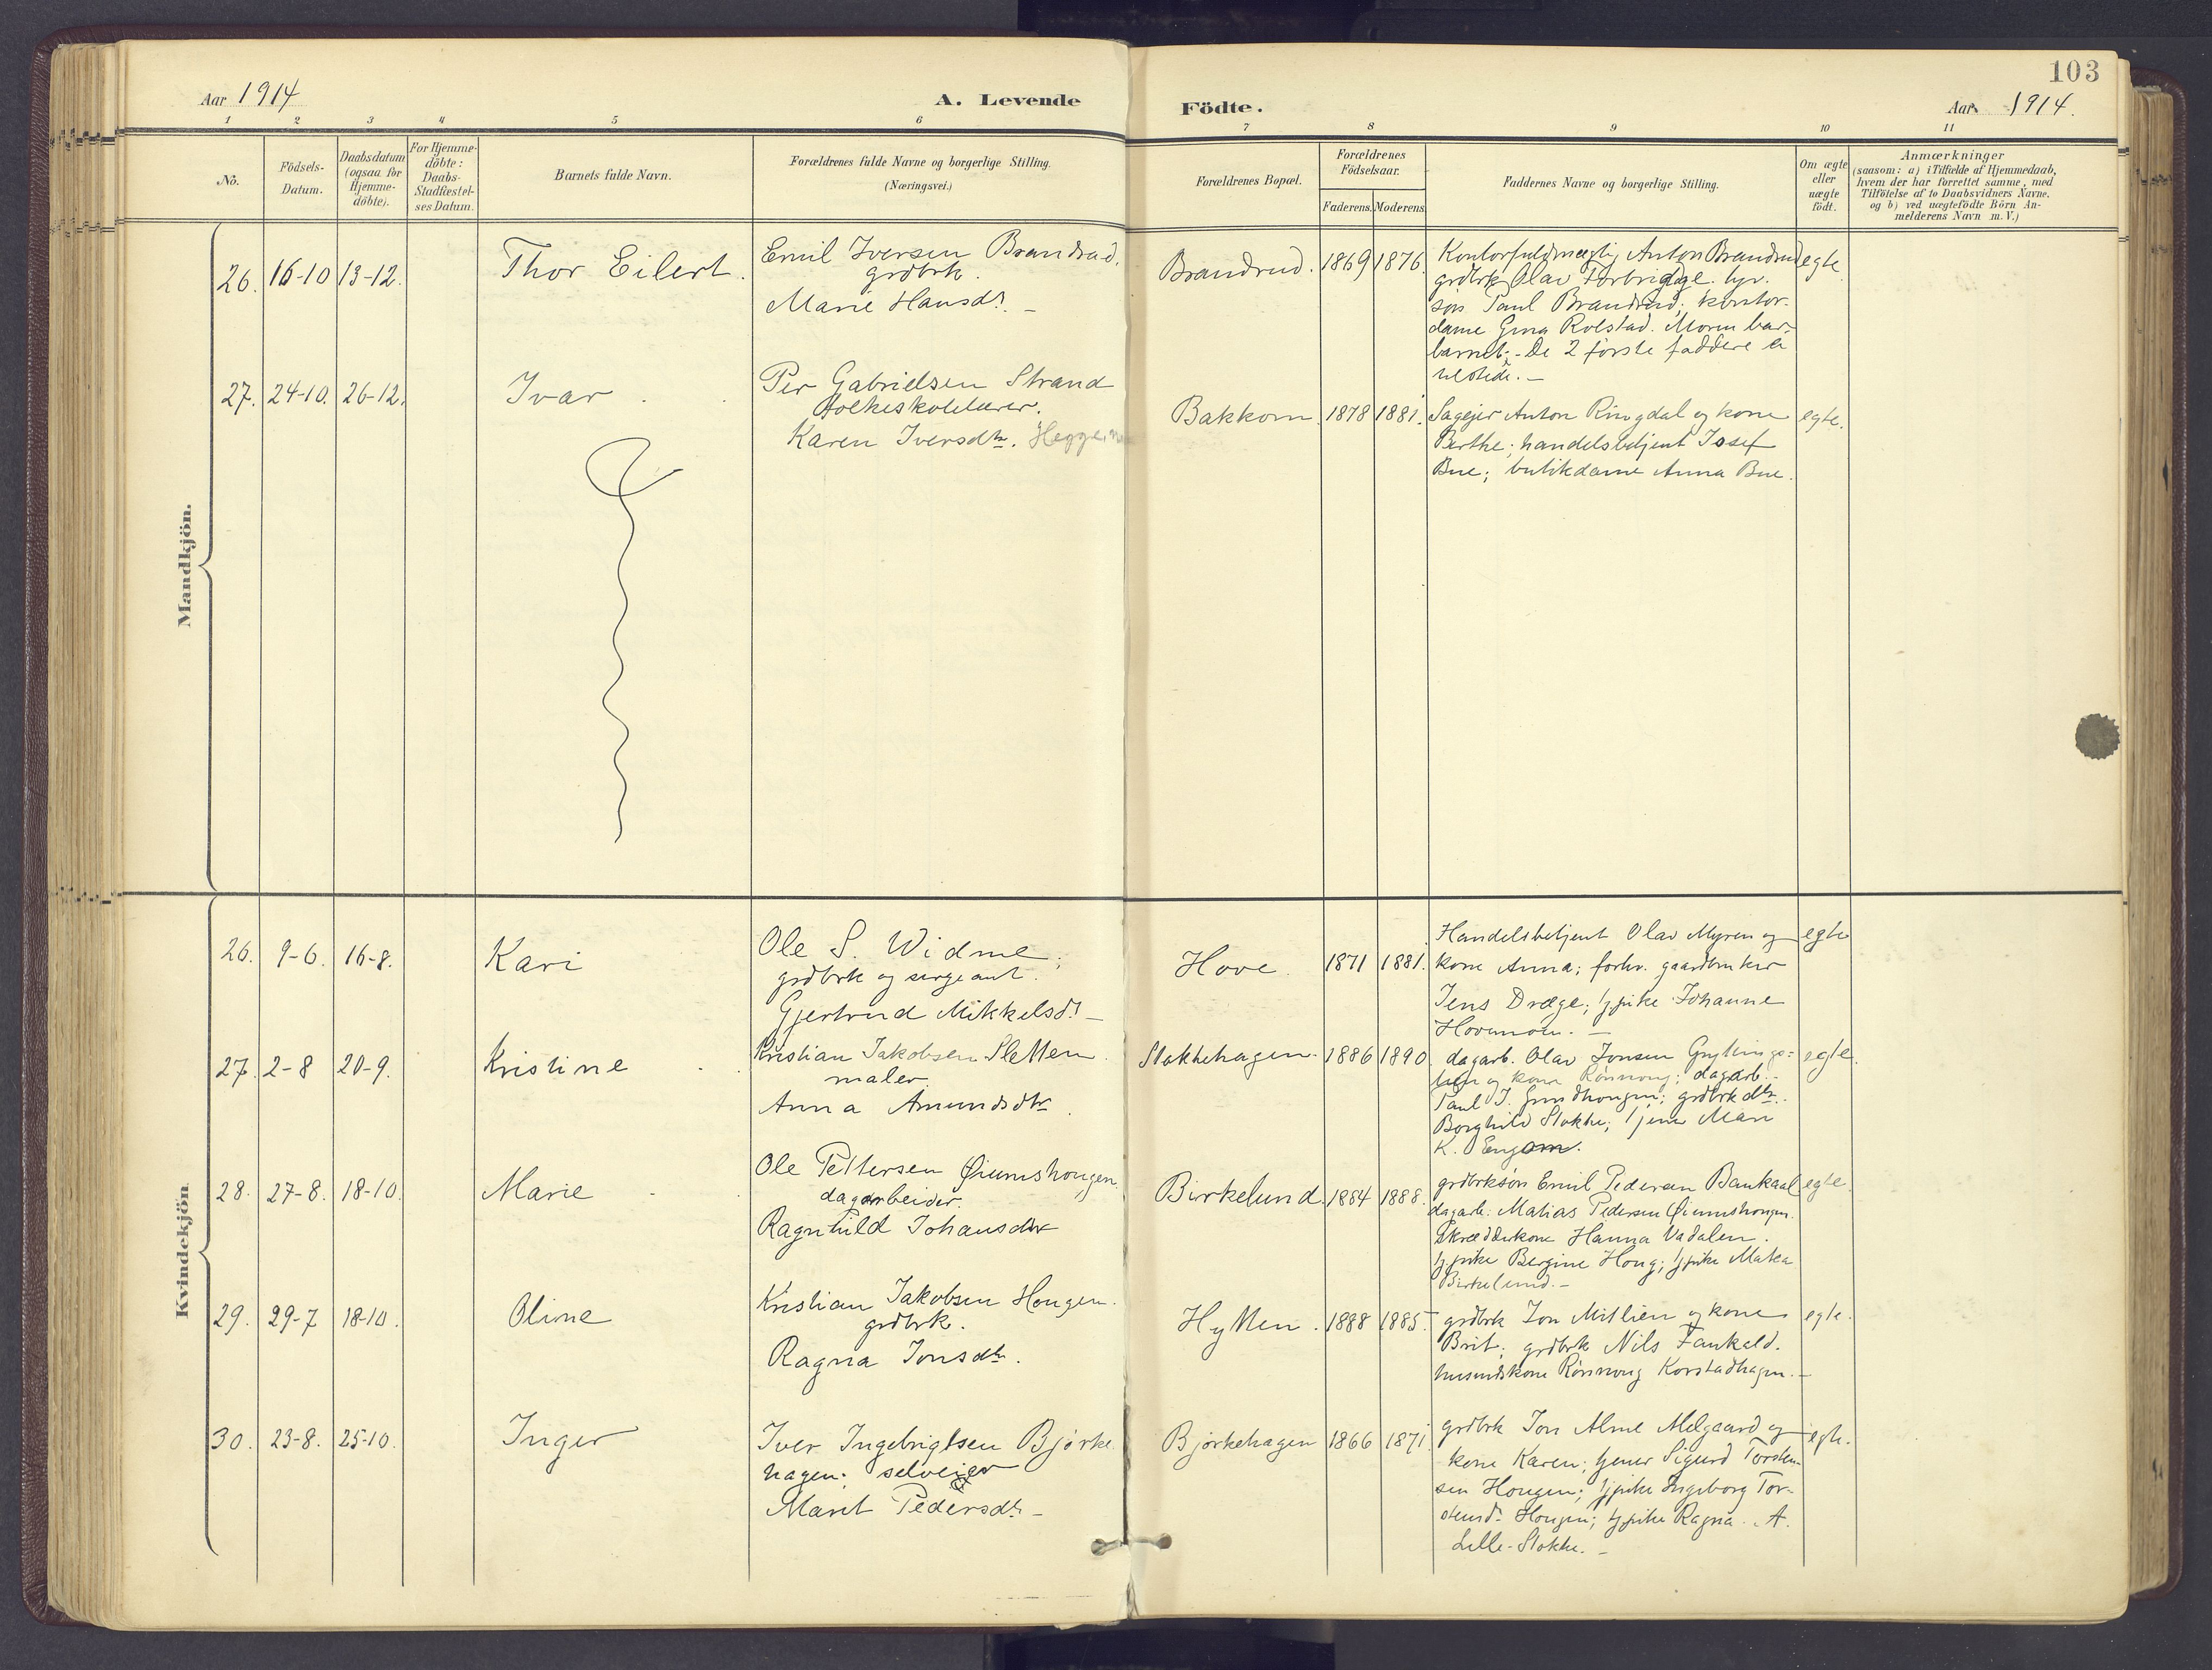 103
Aar 1914
A. Levende
Födte.
Aar 1914.
1 2 3 4 5 6 7 8 9 10 11
No.
Födsels-
Datum.
Daabsdatum
(ogsaa for
Hjemme-
döbte).
For Hjemme-
döbte:
Daabs-
Stadfæstel-
ses Datum.
Barnets fulde Navn.
Forældrenes fulde Navne og borgerlige Stilling.
(Næringsvei.)
Forældrenes Bopæl.
Forældrenes
Födselsaar.
Faderens. Moderens.
Faddernes Navne og borgerlige Stilling.
Om ægte
eller
uægte
födt.
Anmærkninger
(saasom: a) i Tilfælde af Hjemmedaab,
hvem der har forrettet samme, med
Tilföielse af to Daabsvidners Navne.
og b) ved uægtefödte Börn An-
melderens Navn m. V.)
Mandkjön.
26. 16-10 13-12. Thor Eilert.
Emil Iversen Brandrud.
grdbrk.
Marie Hansdr. -
Brandrud. 1869 1876.
Kontorfuldmægtig Anton Brandrud
grdbrk Olav Forbrigdge.
søn Paul Brandrud; kontor-
dame Gina Rolstad. Moren bar
barnet; - De 2 første faddere er
-
egte
27. 24-10. 26-12. Ivar
Per Gabrielsen Strand
folkeskolelærer.
Karen Iversdtr.
Bakkom. 1878 1881.
Sagejer Anton Ringdal og kone
Berthe; handelsbetjent Josef
Bue; butikdame Anna Bue.
egte.
Kvindekjön
26. 9-6. 16-8. Kari
Ole S. Widme;
grdbrk og sergeant.
Gjertrud Mikkelsdr. -
Hove. 1871 1881.
Handelsbetjent Olav Myren og
kone Anna; forhv. gaardbruker
Jens Dræge; tj.pike Johanne
Hovmoen. -
egte
27. 2-8 20-9. Kristine
Kristian Jakobsen Sletten.
maler.
Anna Amundsdtr.
Stokkehagen. 1886 1890
dagarb. Olav Jonsen Grytings=
og kone Rønnoug; dagarb.
Paul J. Grindhougen; grdbrk dtr.
Borghild Stokke; tjener Mari
K. Engom.
egte.
28. 27-8. 18-10. Marie
Ole Pettersen Øiumshougen.
dagarbeider.
Ragnhild Johansdtr
Birkelund. 1884 1888.
grdbrksøn Emil Pedersen Baukaal
dagarb. Matias Pedersen Øiumshougen.
Skrædderkone Hanna Vadalen.
tj.pike Bergine Houg; tj.pike Matea
Birkelund. -
egte.
29. 29-7 18-10. Oline
Kristian Jakobsen Hougen.
grdbrk.
Ragna Jonsdtr.
Hytten. 1888 1885.
grdbrk Jon Mitlien og kone
Brit; grdbrk Nils Faukald.
husmdskone Rønnoug Korstadhagen. -
egte.
30. 23-8. 25-10. Inger
Iver Ingebrigtsen Bjørke
hagen; selveier
Marit Pedersdtr. -
Bjørkehagen 1866 1871
grdbrk Jon Alme Melgaard og
kone Karen; tjener Sigurd Torsten-
sen Hougen; tj.pike Ingeborg Tor-
stensdr Hougen; tj.pike Ragna. A.
Lille-Stokke. -
egte.